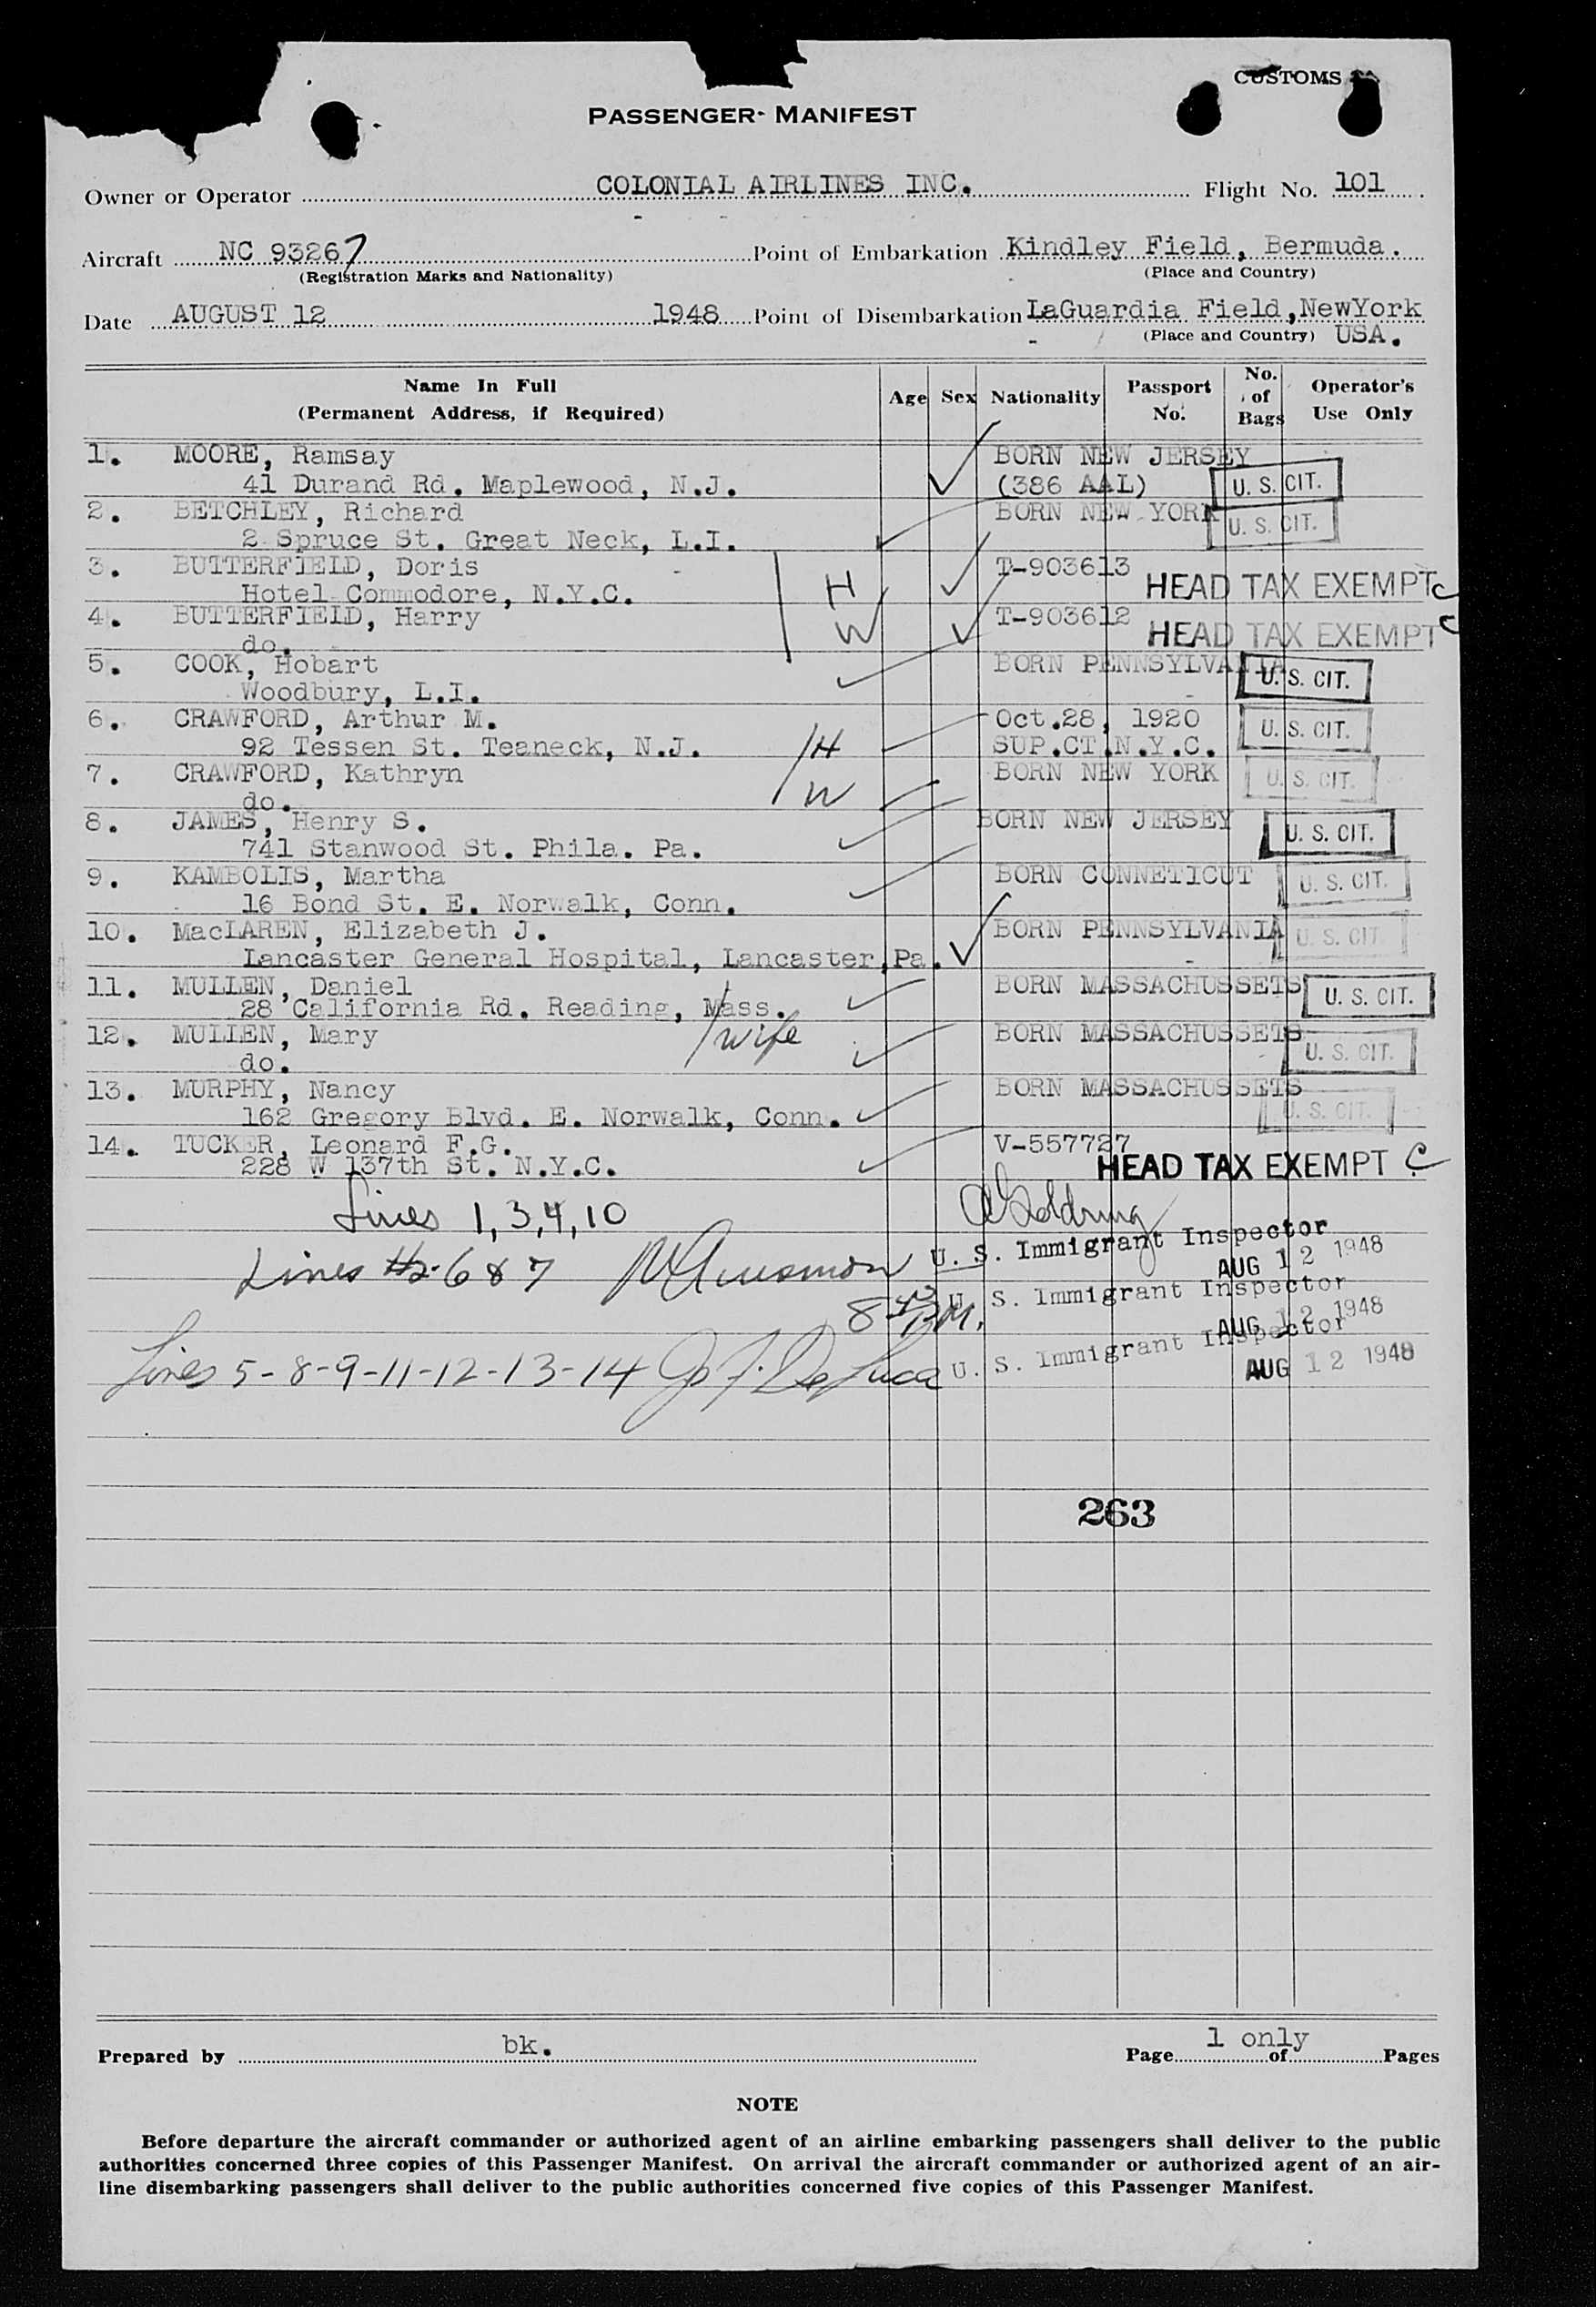 CUSTOMS
PASSENGER MANIFEST
Owner or Operator COLONIAL AIRLINES INC. Flight No. 101
Aircraft NC 93267 Point of Embarkation Kindley Field, Bermuda.
(Registration Marks and Nationality) (Place and Country)
Date AUGUST 12 1948 Point of Disembarkation LaGuardia Field,NewYork
(Place and Country) USA.
Name In Full (Permanent Address, if Required) Age Sex Nationality Passport No. No. of Bags Operator's Use Only
1. MOORE, Ramsay BORN NEW JERSEY
41 Durand Rd. Maplewood, N.J. (386 AAL) U. S. CIT.
2. BETCHLEY, Richard BORN NEW YORK U. S. CIT.
2 Spruce St. Great Neck, L.I.
3. BUTTERFIELD, Doris T-903613
Hotel Commodore, N.Y.C. H HEAD TAX EXEMPT C
4. BUTTERFIELD, Harry T-903612
do. W HEAD TAX EXEMPT C
5. COOK, Hobart BORN PENNSYLVANIA
Woodbury, L.I. U. S. CIT.
6. CRAWFORD, Arthur M. Oct.28, 1920 U. S. CIT.
92 Tessen St. Teaneck, N.J. H SUP.CT.N.Y.C.
7. CRAWFORD, Kathryn BORN NEW YORK U. S. CIT.
do. W
8. JAMES, Henry S. BORN NEW JERSEY
741 Stanwood St. Phila. Pa. U. S. CIT.
9. KAMBOLIS, Martha BORN CONNETICUT U. S. CIT.
16 Bond St. E. Norwalk, Conn.
10. MacLAREN, Elizabeth J. BORN PENNSYLVANIA U. S. CIT.
Lancaster General Hospital, Lancaster,Pa.
11. MULLEN, Daniel BORN MASSACHUSSETS U. S. CIT.
28 California Rd. Reading, Mass.
12. MULLEN, Mary wife BORN MASSACHUSSETS U. S. CIT.
do.
13. MURPHY, Nancy BORN MASSACHUSSETS
162 Gregory Blvd. E. Norwalk, Conn. U. S. CIT.
14. TUCKER, Leonard F.G. V-557727
228 W 137th St. N.Y.C. HEAD TAX EXEMPT C
Lines 1,3,4,10
U. S. Immigrant Inspector
AUG 12 1948
Lines #2-6 & 7
U. S. Immigrant Inspector
AUG 12 1948
Lines 5-8-9-11-12-13-14 U. S. Immigrant Inspector
AUG 12 1948
263
Prepared by bk. Page 1 only of Pages
NOTE
Before departure the aircraft commander or authorized agent of an airline embarking passengers shall deliver to the public
authorities concerned three copies of this Passenger Manifest. On arrival the aircraft commander or authorized agent of an air-
line disembarking passengers shall deliver to the public authorities concerned five copies of this Passenger Manifest.